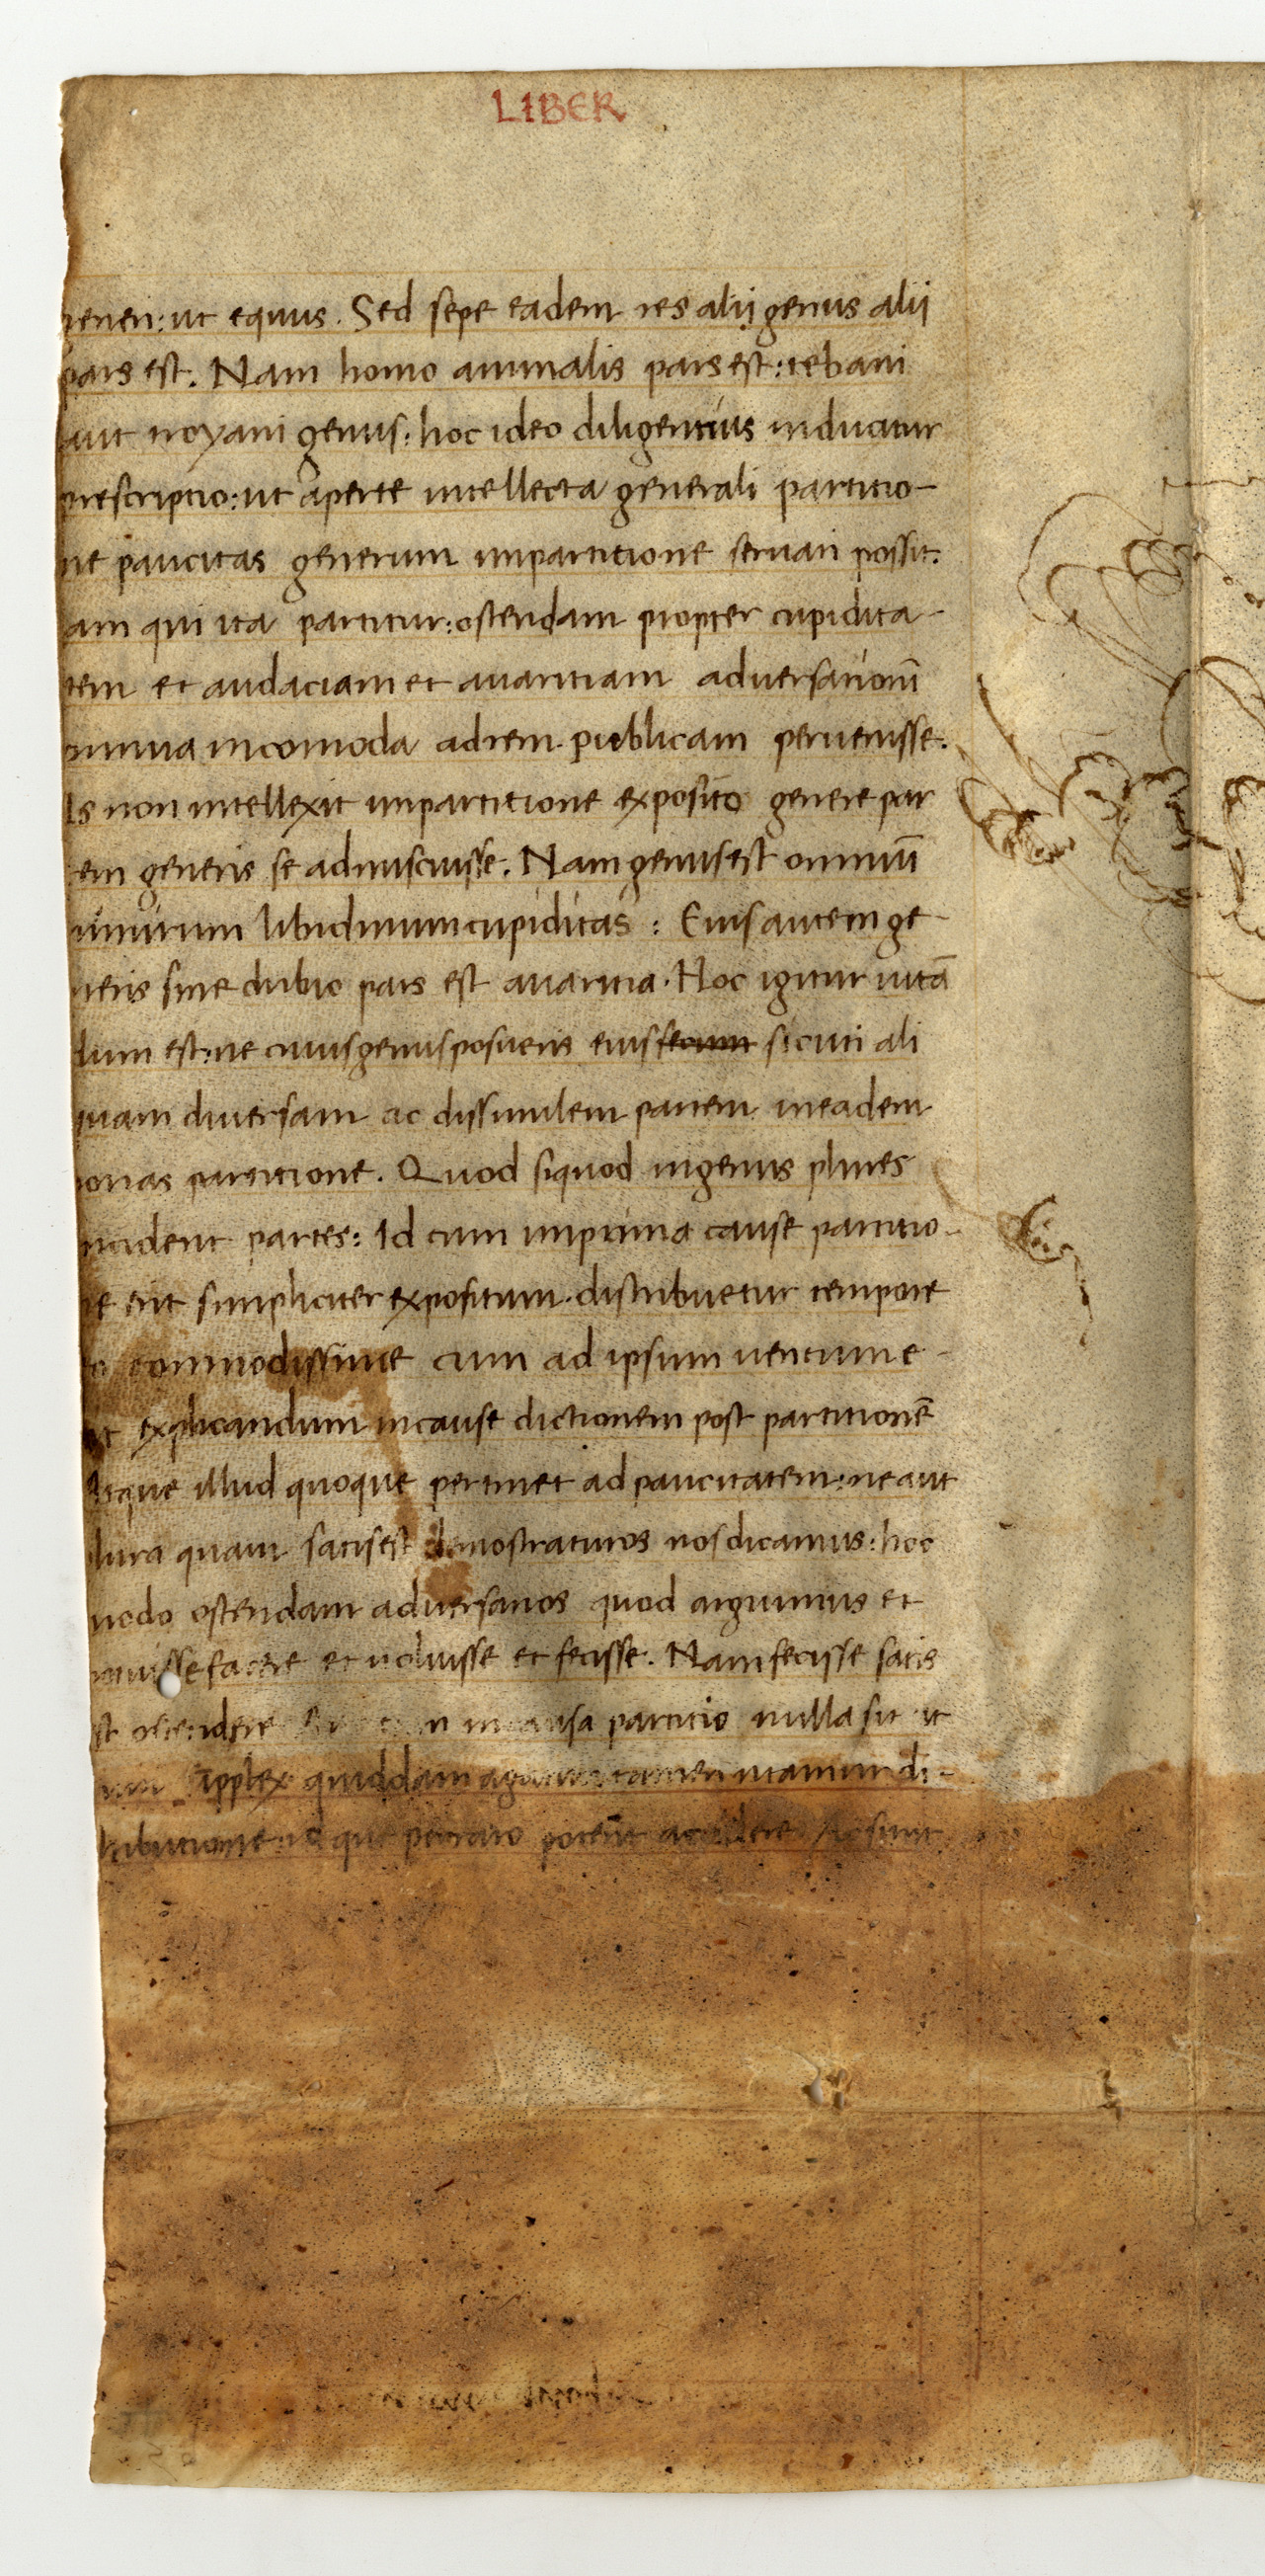 LIBER
generi: ut equus. Sed sepe eadem res alii genus alii
pars est. Nam homo animalis pars est: tebani
aut troyani genus: hoc ideo diligentius inducitur
prescriptio: ut aperte intellecta generali partitio-
ne paucitas generum inpartitione servari possit.
am qui ita partitur: ostendam propter cupidita-
tem et audaciam et avaritiam adversarioru̅
omnia incomoda adrem publicam pervenisse.
Is non intellexit inpartitione exposito genere par
tem generis se admiscuisse. Nam genus est omniu̅
nimirum libidinum cupiditas: Eius autem ge-
neris sine dubio pars est avaritia. Hoc igitur vita̅
dum est: ne cuius genus posueris eius sicuti ali
quam diversam ac dissimilem partem ineadem
ponas partitione. Quod siquod ingenus plures
incident partes: Id cum inprima cause partitio-
ne erit simpliciter expositum. distribuetur tempore
eo commodissime cum ad ipsum ventum e-
rit explicandum incause dictionem post partitione̅
Atque illud quoque pertinet ad paucitatem: ne aut
plura quam satis est demostraturos nos dicamus: hoc
modo ostendam adversarios quod arguimus et
potuisse facere et voluisse et fecisse. Nam fecisse satis
est ostendere in causa partitio nulla sit ut
quiddam agatur tamen utamur di-
stributione: id que perraro potest accidere. Ac sunt